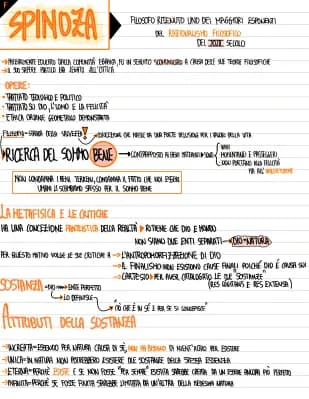 SPINOZA
FILOSOFO RITENUTO UNO DEI MAGGIORI ESPONENTI
DEL RAZIONALISMO FILOSOFICO
DEL XVII SECOLO
→ INIZIALMENTE EDUCATO DALLA COMUNITÀ EBRAICA, FU IN SEGUITO SCOMUNICATO A CAUSA DELLE SUE TEORIE FILOSOFICHE
→ IL SUO SAPERE PRATICO ERA LEGATO ALL'OTTICA
OPERE:
• TRATTATO TEOLOGICO E POLITICO
• TRATTATO SU DIO, L'UOMO E LA FELICITÀ
• ETHICA ORDINE GEOMETRICO DEMONSTRATA
FILOSOFIA = STRADA DELLA SALVEZZA! → CONCEZIONE CHE NASCE DA UNA FORTE DELUSIONE PER I VALORI DELLA VITA
→ RICERCA DEL SOMMO BENE → CONTRAPPOSTO AI BENI MATERIALI → SONO
VANI
MOMENTANEI E PASSEGGERI
NON PORTANO ALLA FELICITÀ
MA ALL'INSODDISFAZIONE
NON CONDANNA I BENI TERRENI, CONDANNA IL FATTO CHE NOI ESSERI
UMANI LI SCAMBIAMO SPESSO PER IL SOMMO BENE
LA METAFISICA E LE CRITICHE
HA UNA CONCEZIONE PANTEISTICA DELLA REALTÀ → RITIENE CHE DIO E MONDO
NON SIANO DUE ENTI SEPARATI → DIO=NATURA
PER QUESTO MOTIVO VOLGE LE SUE CRITICHE A → L'ANTROPOMORFIZZAZIONE DI DIO
→ IL FINALISMO NON ESISTONO CAUSE FINALI POICHÉ DIO È CAUSA SUI
→ CARTESIO → PER AVER CATALOGATO LE DUE SOSTANZE
(RES COGITANS E RES EXTENSA)
SOSTANZA = DIO → ENTE PERFETTO
LO DEFINISCE
"CIÒ CHE È IN SÉ E PER SÉ SI CONCEPISCE"
ATTRIBUTI DELLA SOSTANZA
→ INCREATA = ESSENDO PER NATURA CAUSA DI SÉ, NON HA BISOGNO DI NIENT'ALTRO PER ESISTERE
→ UNICA = IN NATURA NON POTREBBERO ESISTERE DUE SOSTANZE DELLA STESSA ESSENZA
→ ETERNA = PERCHÉ ESISTE E SE NON FOSSE "PER SEMPRE" ESISTITA SAREBBE CREATA DA UN ESSERE ANCORA PIÙ PERFETTO
→ INFINITA = PERCHÉ SE FOSSE FINITA SAREBBE LIMITATA DA UN'ALTRA DELLA MEDESIMA NATURA